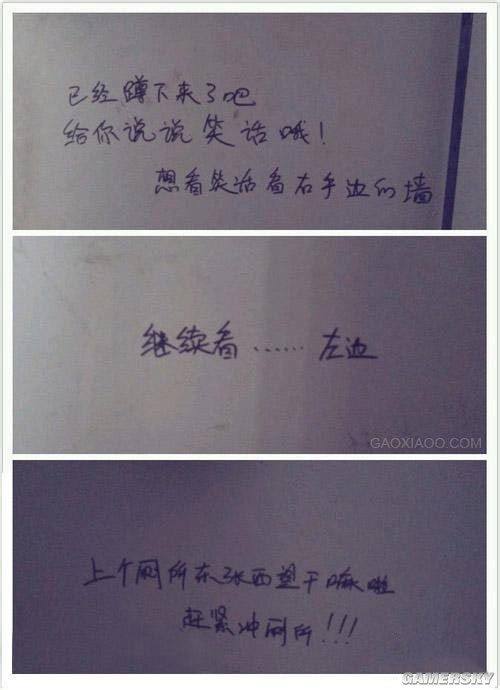 已经蹲下来了吧
给你说说笑话哦!
想看笑话看右手边的墙
继续看……左边
GAOXIAOO.COM
上个厕所东张西望干嘛啦
赶紧冲厕所!!!
GAMERSKY